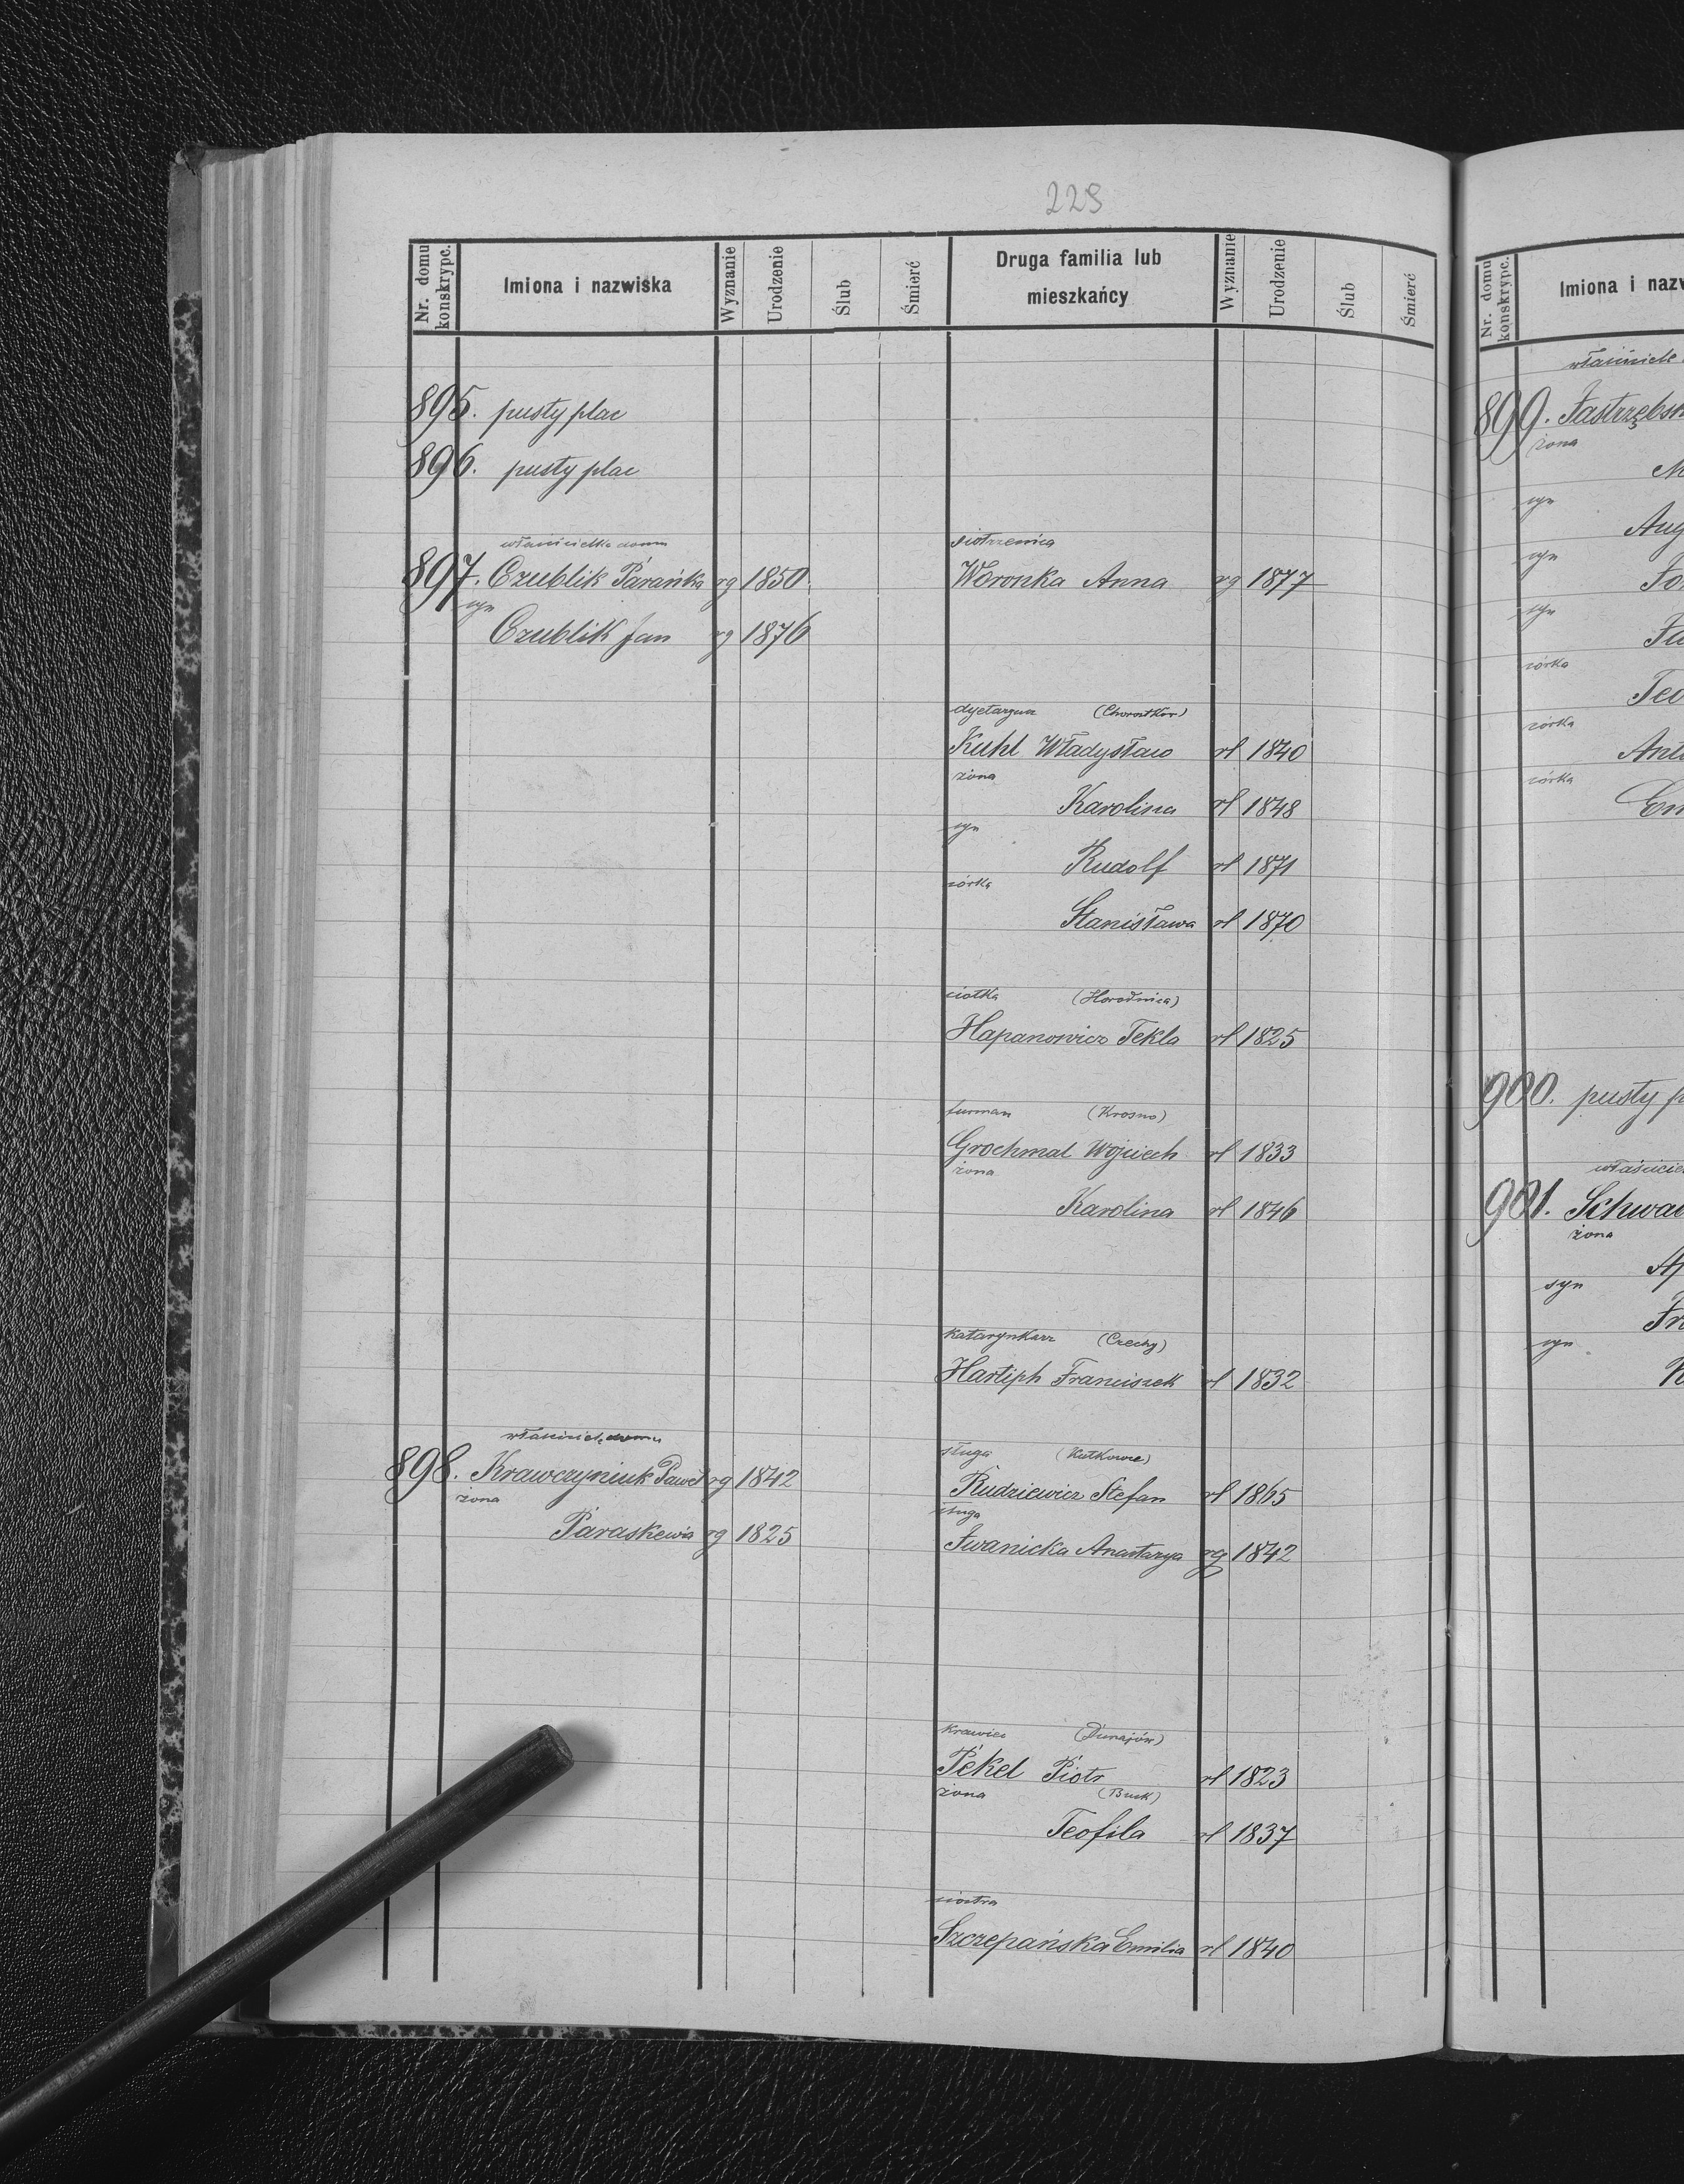 223
Nr. domu konskrypc.
Imiona i nazwiska
Wyznanie
Urodzenie
Ślub
Śmierć
Druga familia lub mieszkańcy
Wyznanie
Urodzenie
Ślub
Śmierć
895. pusty plac
896. pusty plac
właścicielka domu
897. Czublik Parańka rg 1850
syn
Czublik Jan rg 1876
siostrzenica
Woronka Anna rg 1877
dyetaryusz (Chorostków)
Kuhl Władysław rl 1840
żona
Karolina rl 1848
syn
Rudolf rl 1871
córka
Stanisława rl 1870
ciotka (Horodnica)
Hapanowicz Tekla rl 1825
furman (Krosno)
Grochmal Wojciech rl 1833
żona
Karolina rl 1846
katarynkarz (Czechy)
Hartiph Franciszek rl 1832
właściciel domu
898. Krawczyniuk Paweł rg 1842
żona
Paraskewia rg 1825
sługa (Kutkowce)
Rudziewicz Stefan rl 1865
sługa
Iwanicka Anastazya rg 1842
krawiec (Dunajów)
Pekel Piotr rl 1823
żona (Busk)
Teofila rl 1837
siostra
Szczepańska Emilia rl 1840
Nr. domu konskrypc.
Imiona i nazw
właściciel
899. Jastrzębsk
żona
syn
Aug
syn
Jo
syn
Ju
córka
Teo
córka
Anto
córka
Em
900. pusty p
właściciel
901. Schwar
żona
Ap
syn
Fr
syn
K